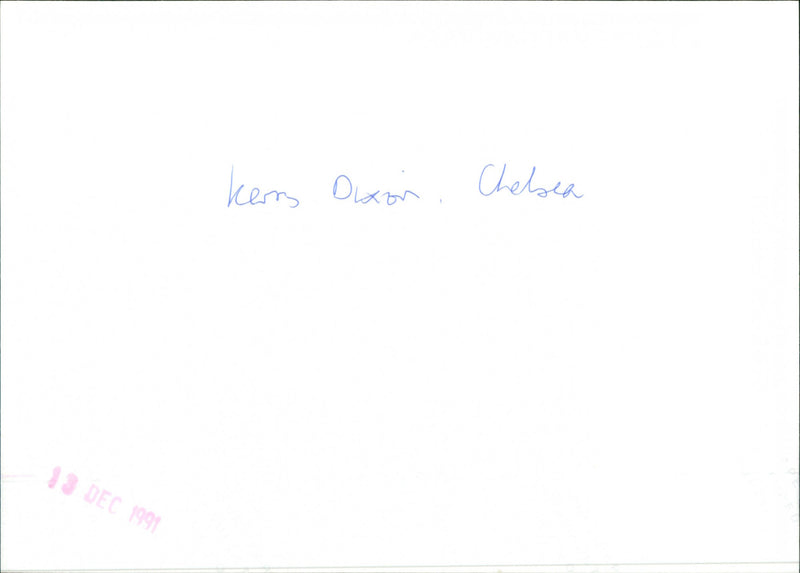 Kerry Dixon. Chelsea
13 DEC 1991